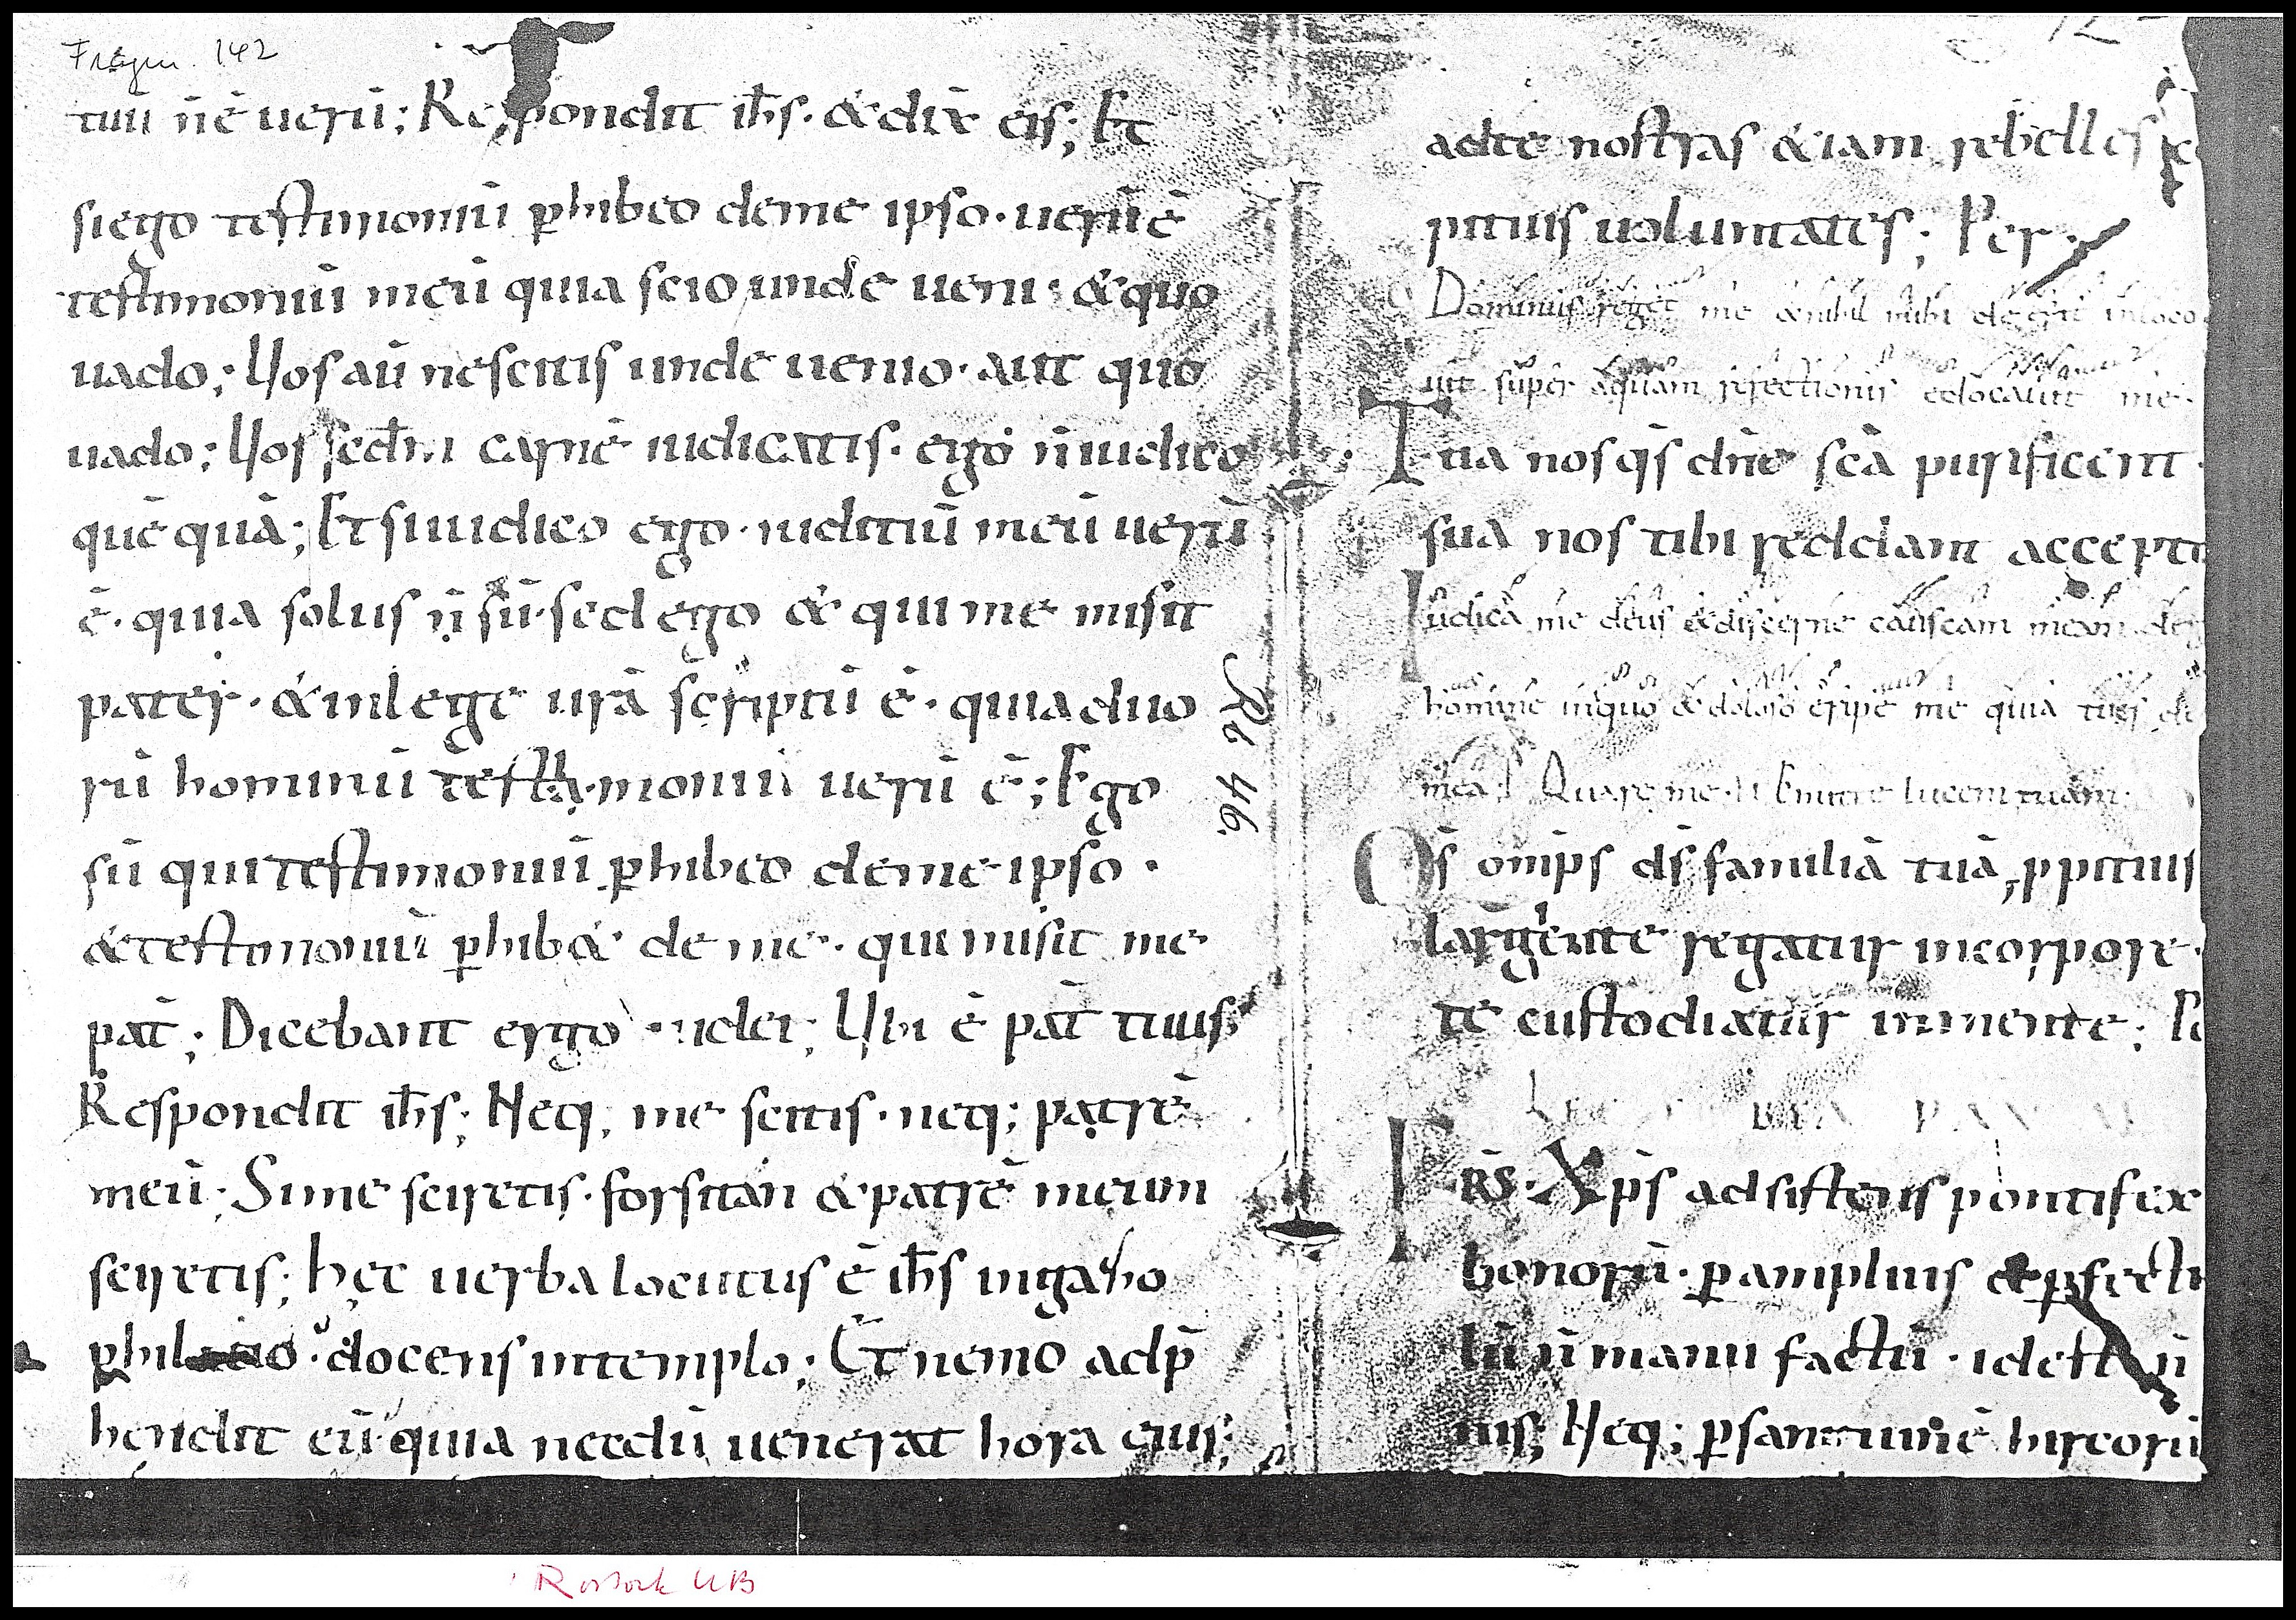 Fragm. 142
12
tuū n̄ ē uerū; Respondit ih̄s. & dix̄ eis; Et
si ego testimoniū ꝑhibeo de me ipso. uerū ē
testimoniū meū quia scio unde ueni. & quo
uado; Uos aū nescitis unde uenio. aut quo
uado; Uos secd̄m carnē iudicatis. ego n̄ iudico
quēquā; Et si iudico ego. iuditiū meū uerū
ē. quia solus n̄ sū. sed ego & qui me misit
pater. & in lege ur̄a scriptū ē. quia duo
rū hominū testimoniū uerū ē; Ego
sū qui testimoniū ꝑhibeo de me ipso.
& testimoniū ꝑhib& de me. qui misit me
pat̄; Dicebant ergo iudei; Ubi ē pat̄ tuus
Respondit ih̄s; Neq; me scitis. neq; patrē
meū; Si me sciretis. forsitan & patrē meum
sciretis; hec uerba locutus ē ih̄s in gazo
docens in templo; Et nemo adp̄
hendit eū quia necdū uenerat hora eius;
R6 46
ad te nostras & iam rebelles
pitius uoluntates; Per
Dominus reget me & nihil mihi deerit in loco
super aquam refectionis edocauit me
Tua nos q̄s dn̄e sc̄a purificent
sua nos tibi reddant
Iudica me deus & discerne causcam meam de
homine iniquo & doloso eripe me quia tu es
mea. Quare me Emitte lucem tuam
Qs om̄ps ds̄ familiā tuā ꝓpitius
largiente regatur in corpore.
te custodiatur in mente;
FRS. Xp̄s adsistens pontifex
bonorū. ꝑ amplius & ꝑfecti
lū n̄ manu factū. id est n̄
nis; Neq; ꝑ sanguinē hircorū
Rostock UB